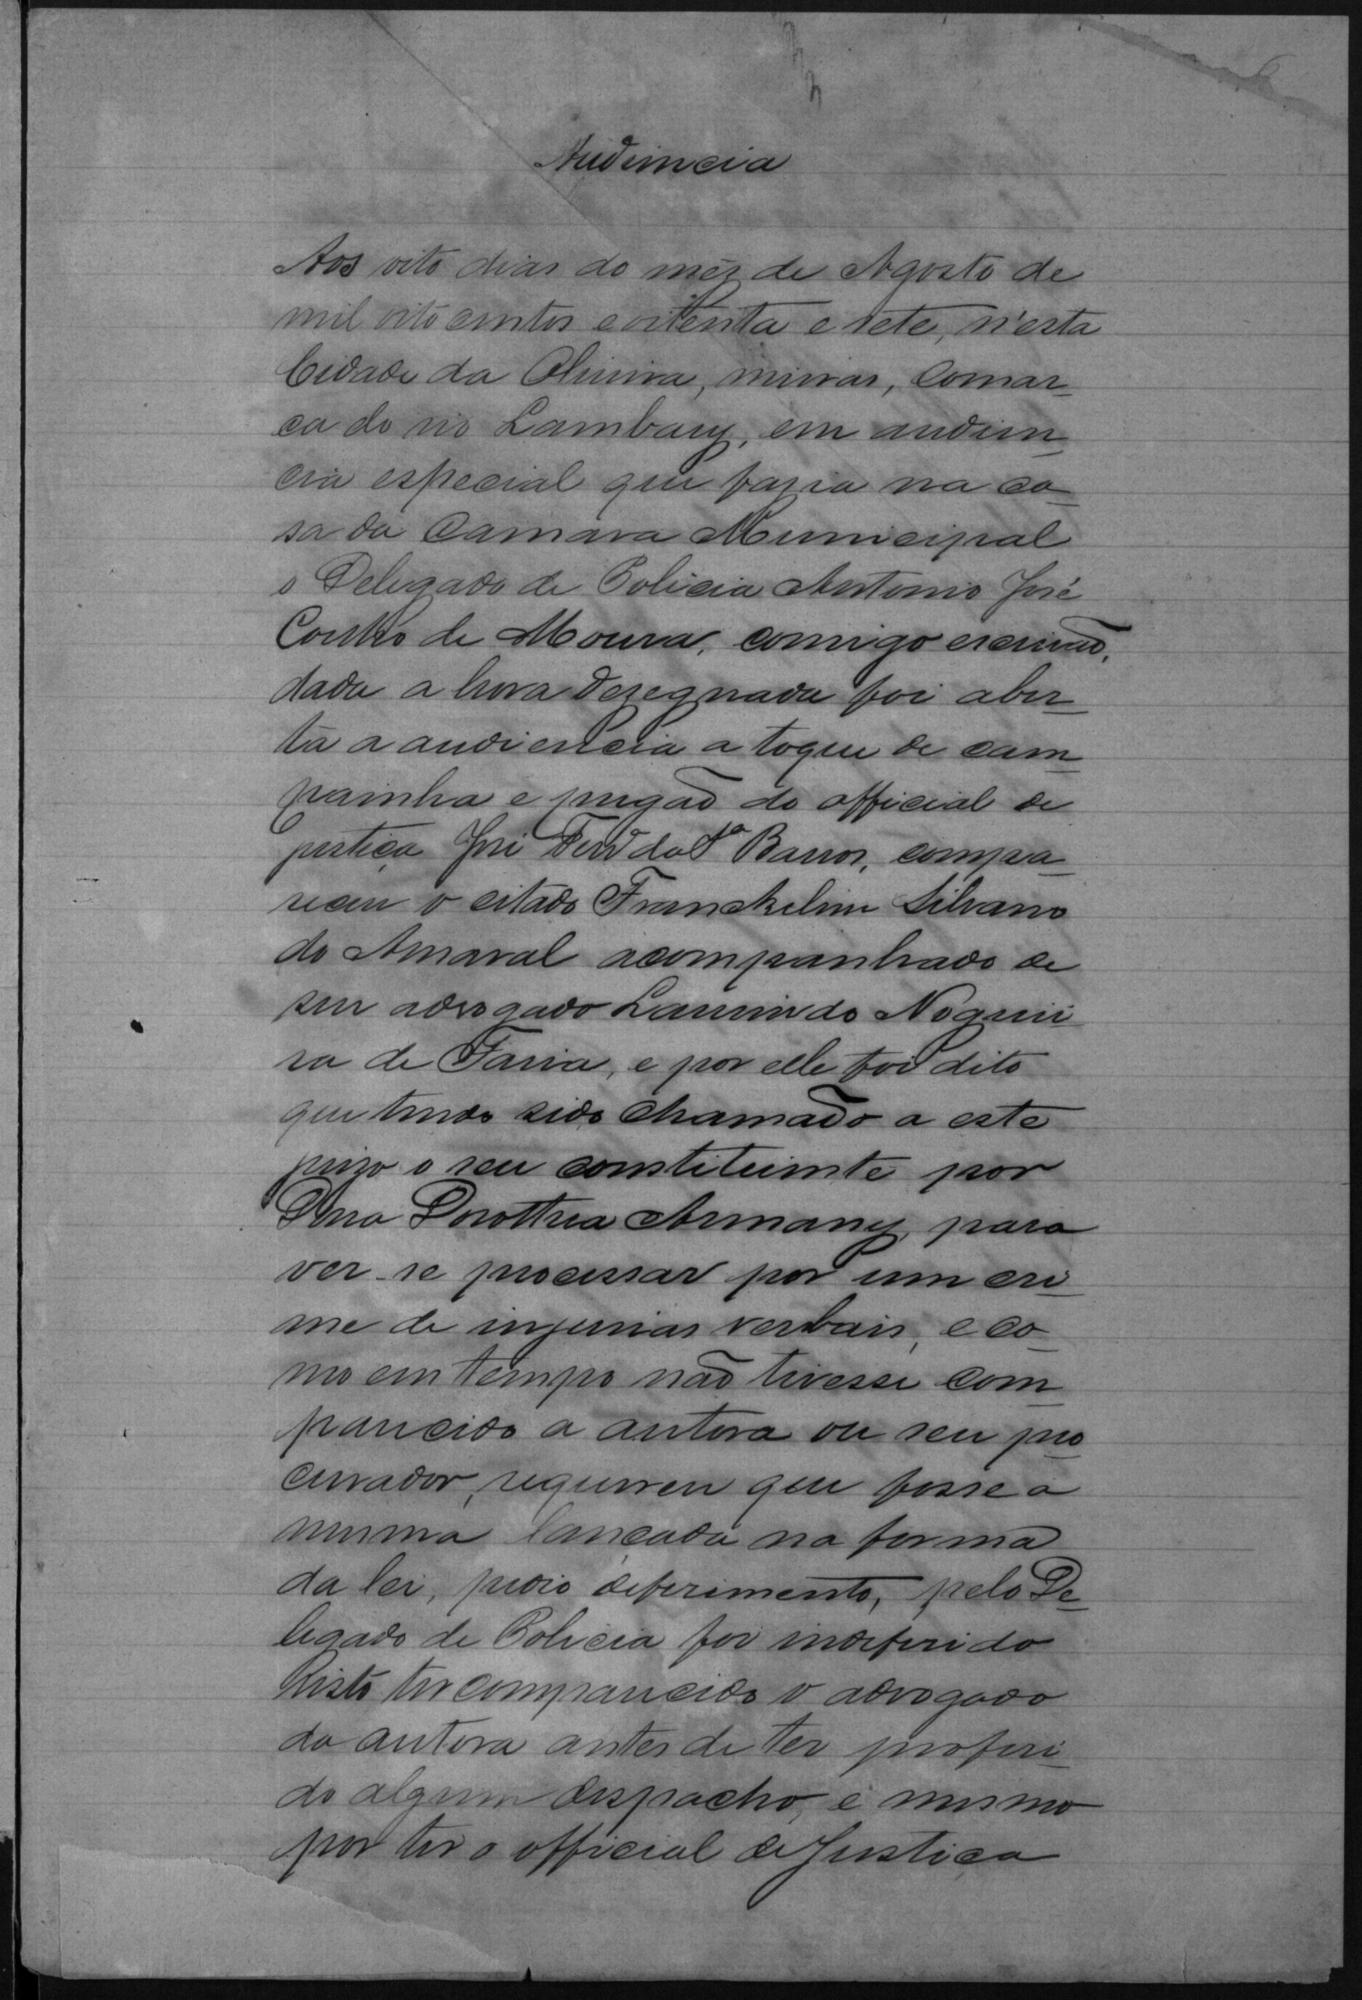 Audiencia
Aos oito dias do mêz de Agosto de
mil oitocentos e oitenta e sete, n'esta
Cidade da Oliveira, minas, Comar_
ca do rio Lambary, em audien_
cia especial que fazia na ca_
sa da Camara Municipal
o Delegado de Policia Antonio José
Coelho de Moura, comigo escrivaõ,
dada a hora dezegnada foi aber_
ta a audiencia a toque de cam_
painha e pregaõ do official de
justiça José Ferr.ª da S.ª Barros, compa_
receu o citado Franckelim Silvano
do Amaral acompanhado de
seu advogado Laurindo Noguei
ra de Faria, e por elle foi dito
que tendo sido chamado a este
juizo o seu constituinte por
Dona Dorothea Armany, para
ver-se processar por um cri_
me de injurias verbais, e co_
mo em tempo naõ tivesse com_
parecido a autora ou seu pro_
curador, requereu que fosse a
mesma lançada na forma
da lei, pedio deferimento, pelo De_
legado de Policia foi indeferido
visto ter comparecido o advogado
da autora antes de ter proferi_
do algum despacho, e mesmo
por ter o official de Justiça